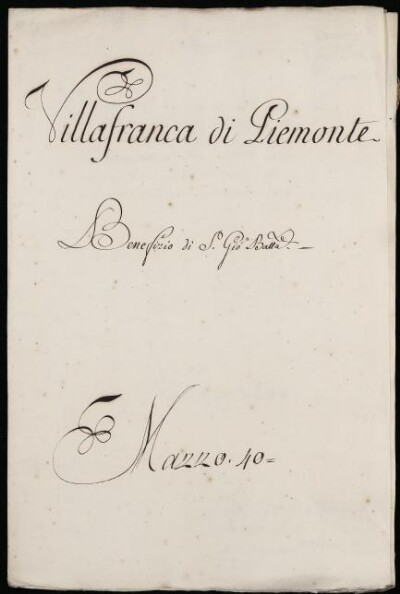 Villafranca di Piemonte
Benefizio di S. Gio. Batta.
Mazzo. 40=